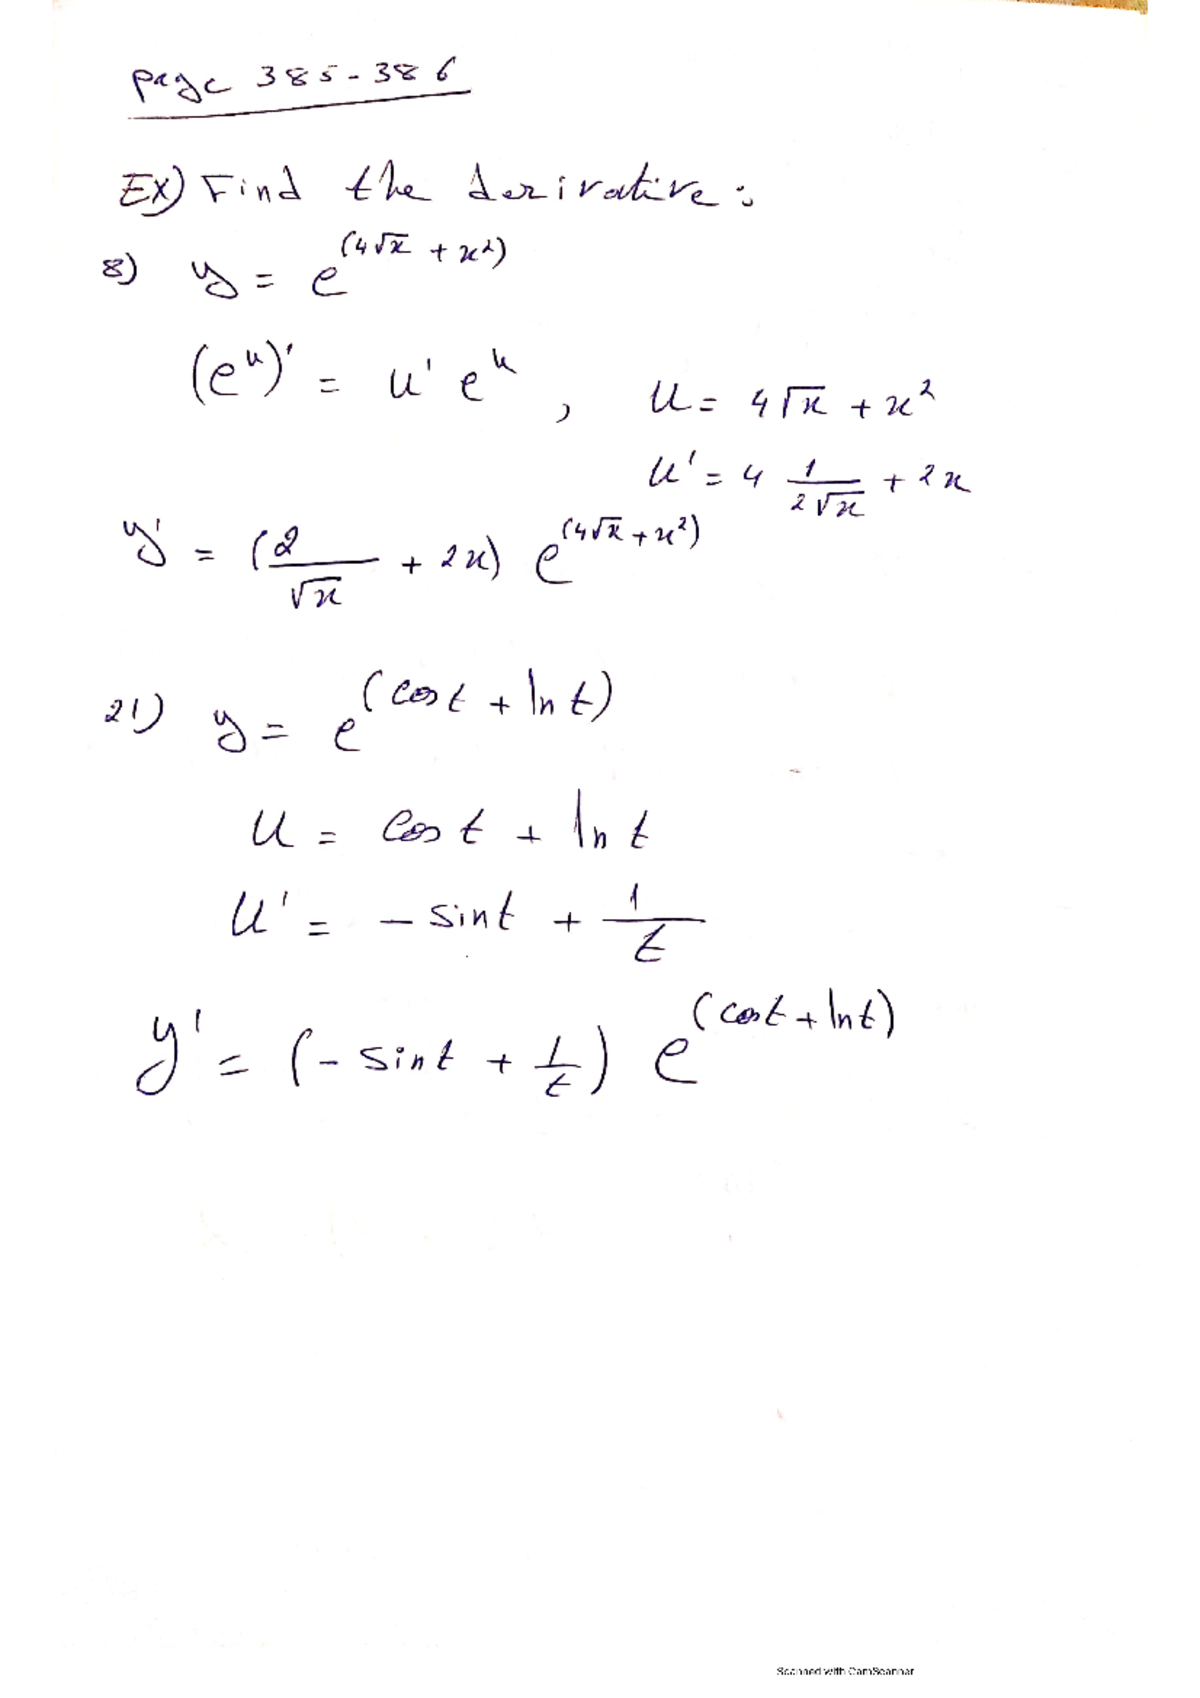 page 385-386
EX) Find the derivative:
8) y = e^(4√x + x²)
(e^u)' = u' e^u , u = 4√x + x²
u' = 4 1/(2√x) + 2x
y' = (2/√x + 2x) e^(4√x + x²)
21) y = e^(cos t + ln t)
u = cos t + ln t
u' = - sin t + 1/t
y' = (- sin t + 1/t) e^(cos t + ln t)
Scanned with CamScanner